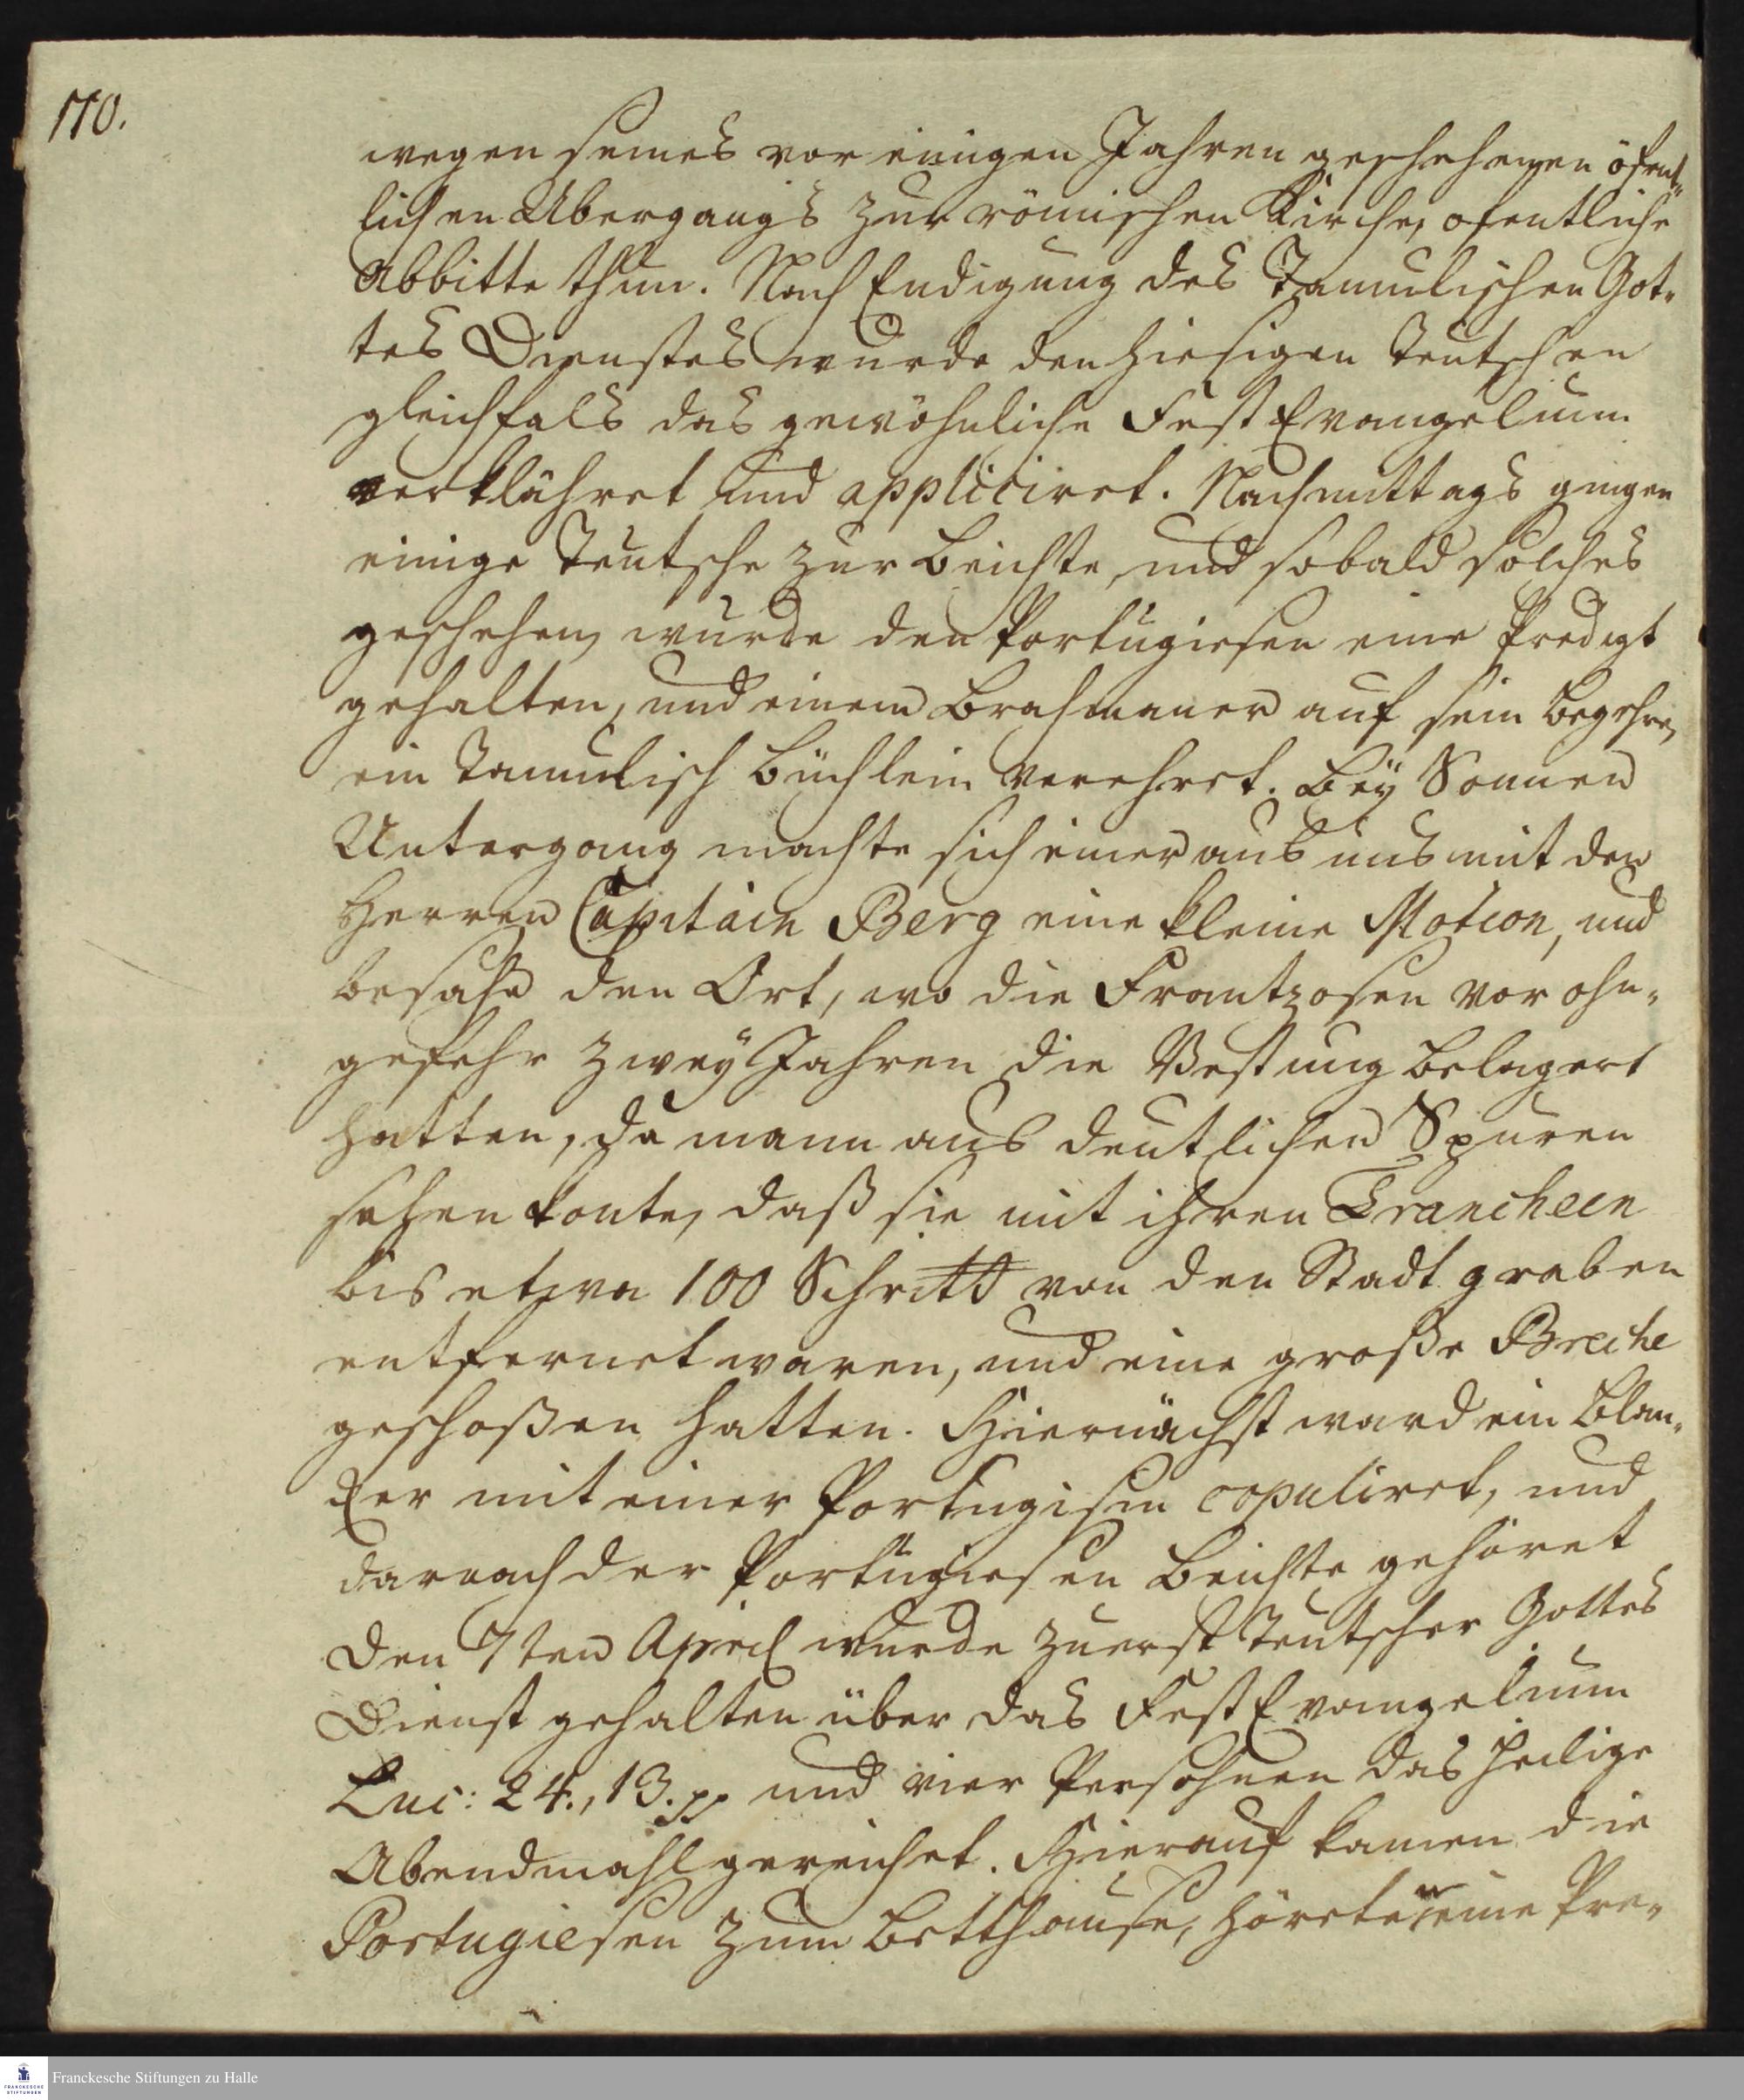 170.
wegen seines vor einigen Jahren geschehenen öfent„
lichen Ubergangs zur römischen Kirche, ofentliche
Abbitte thun. Nach Endigung des Tamulischen Got„
tes Dienstes wurde den hiesigen Teutschen
gleichfals das gewöhnliche Fest Evangelium
verklähret und appliciret. Nachmittags gingen
einige Teutsche zur Beichte, und sobald solches
geschehen, wurde den Portugiesen eine Predigt
gehalten, und einem Brahmaner auf sein Begehren
ein Tamulisch Büchlein verehret. Bey Sonnen
Untergang machte sich einer aus uns mit den
Herren Capitain Berg eine kleine Motion, und
besahe den Ort, wo die Frantzosen vor ohn„
gefehr zwey Jahren die Vestung belagert
hatten, da mann aus deutlichen Spuren
sehen konte, daß sie mit ihren Trancheen
bis etwa 100 Schritt von den Stadt graben
entfernet waren, und eine große Breche
geschoßen hatten. Hiernächst ward ein
mit einer Portugisin copuliret, und
darnach der Portugiesen Beichte gehöret
Den 7ten April wurde zuerst Teutscher Gottes
Dienst gehalten über das Fest Evangelium
Luc: 24., 13. pp und vier Persohnen das heilige
Abendmahl gereichet. Hierauf kamen die
Portugiesen zum Betthause, höreten eine Pre„
Franckesche Stiftungen zu Halle
FRANCKESCHE
STIFTUNGEN